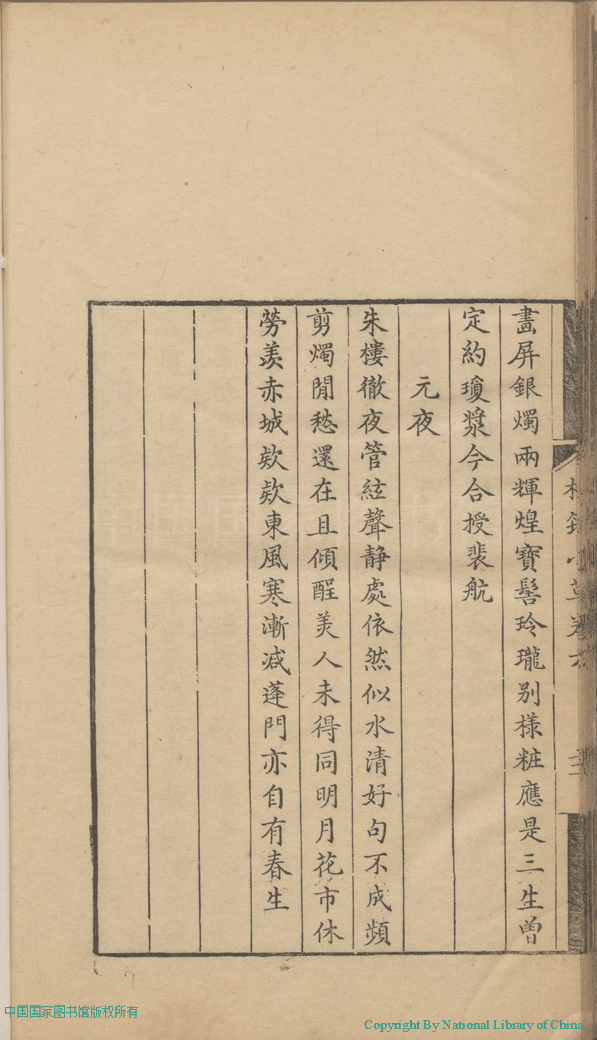 畫屏銀燭兩輝煌寶髻玲瓏别樣粧應是三生曾
定約瓊漿今合授裴航
元夜
朱樓徹夜管絃聲静處依然似水清好句不成頻
剪燭閒愁還在且傾酲美人未得同明月花市休
勞羨赤城欸欸東風寒漸减蓬門亦自有春生
中国国家图书馆版权所有
Copyright By National Library of China